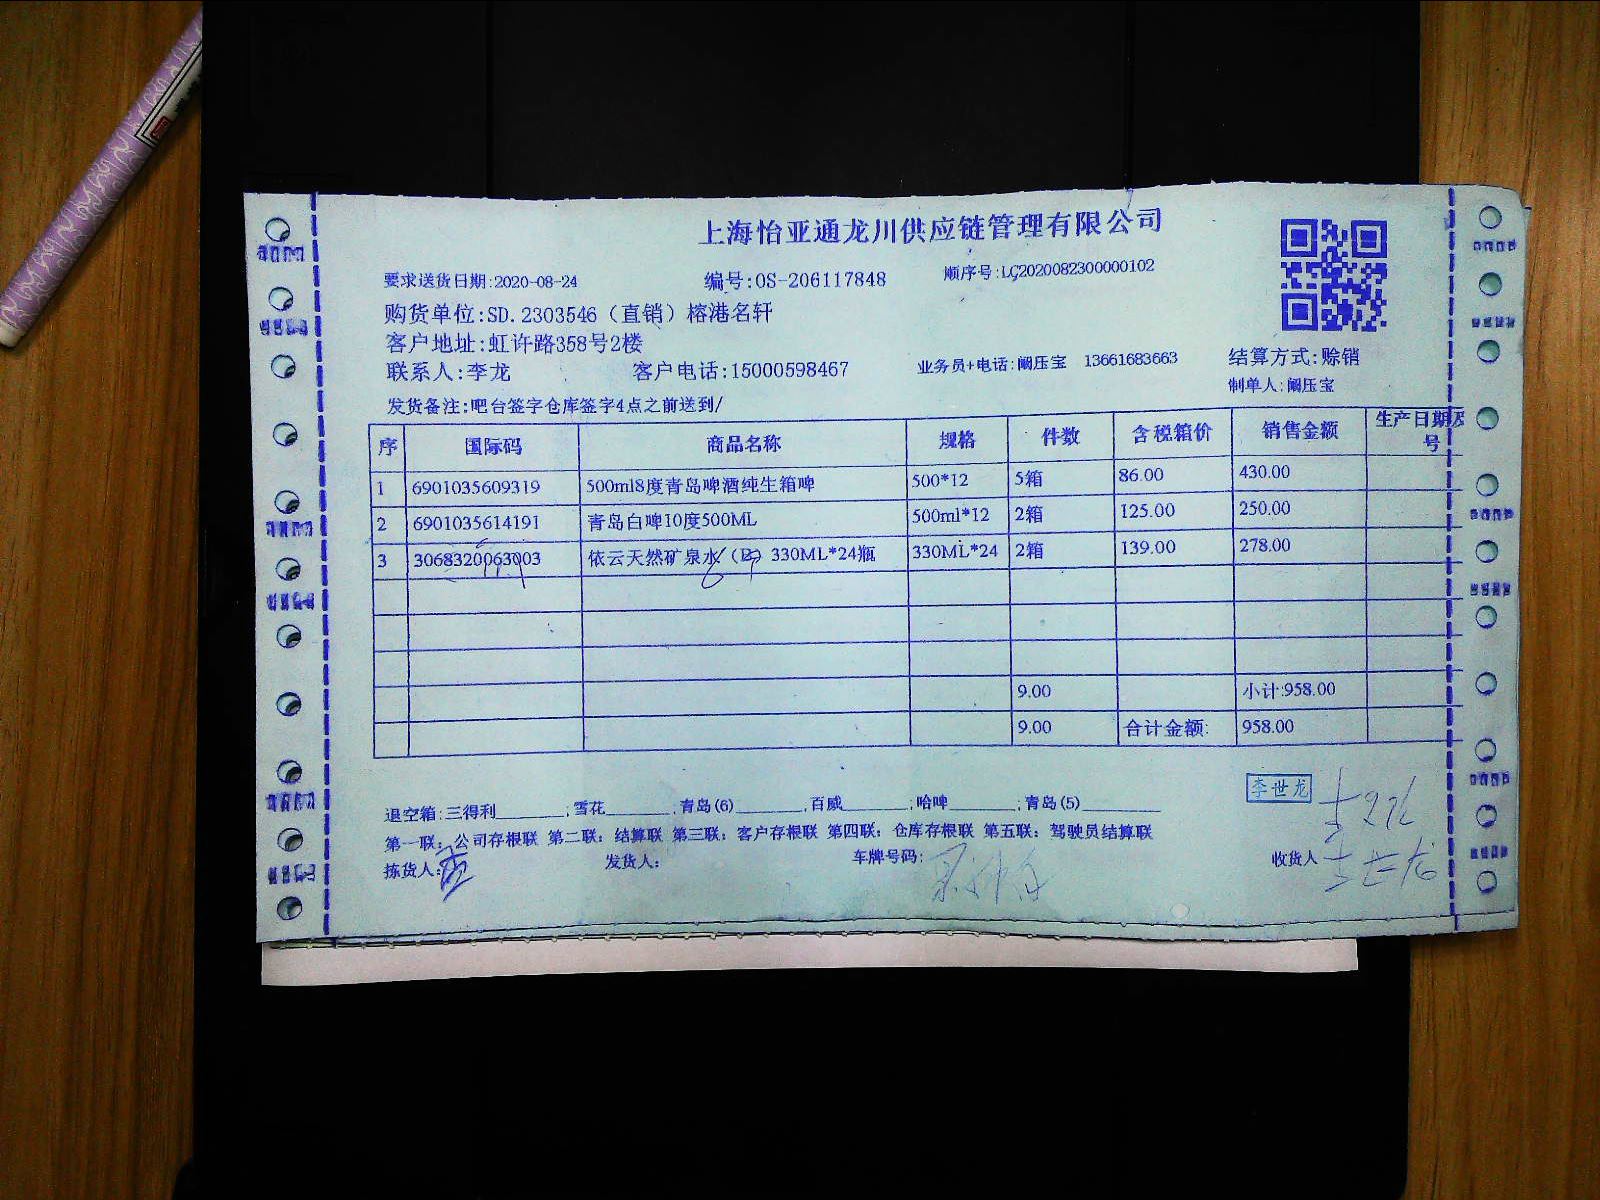 上海怡亚通龙川供应链管理有限公司
要求送货日期:2020-08-24 编号:OS-206117848 顺序号:LG2020082300000102
购货单位:SD.2303546（直销）榕港名轩
客户地址:虹许路358号2楼
联系人:李龙 客户电话:15000598467 业务员+电话:阚压宝 13661683663 结算方式:赊销
制单人:阚压宝
发货备注:吧台签字仓库签字4点之前送到/
序 国际码 商品名称 规格 件数 含税箱价 销售金额 生产日期及号
1 6901035609319 500ml8度青岛啤酒纯生箱啤 500*12 5箱 86.00 430.00
2 6901035614191 青岛白啤10度500ML 500ml*12 2箱 125.00 250.00
3 3068320063003 依云天然矿泉水（B）330ML*24瓶 330ML*24 2箱 139.00 278.00
9.00 小计:958.00
9.00 合计金额: 958.00
李世龙
退空箱:三得利________;雪花________;青岛(6)________;百威________;哈啤________;青岛(5)________
第一联：公司存根联 第二联：结算联 第三联：客户存根联 第四联：仓库存根联 第五联：驾驶员结算联
拣货人: 发货人: 车牌号码: 收货人 李世龙